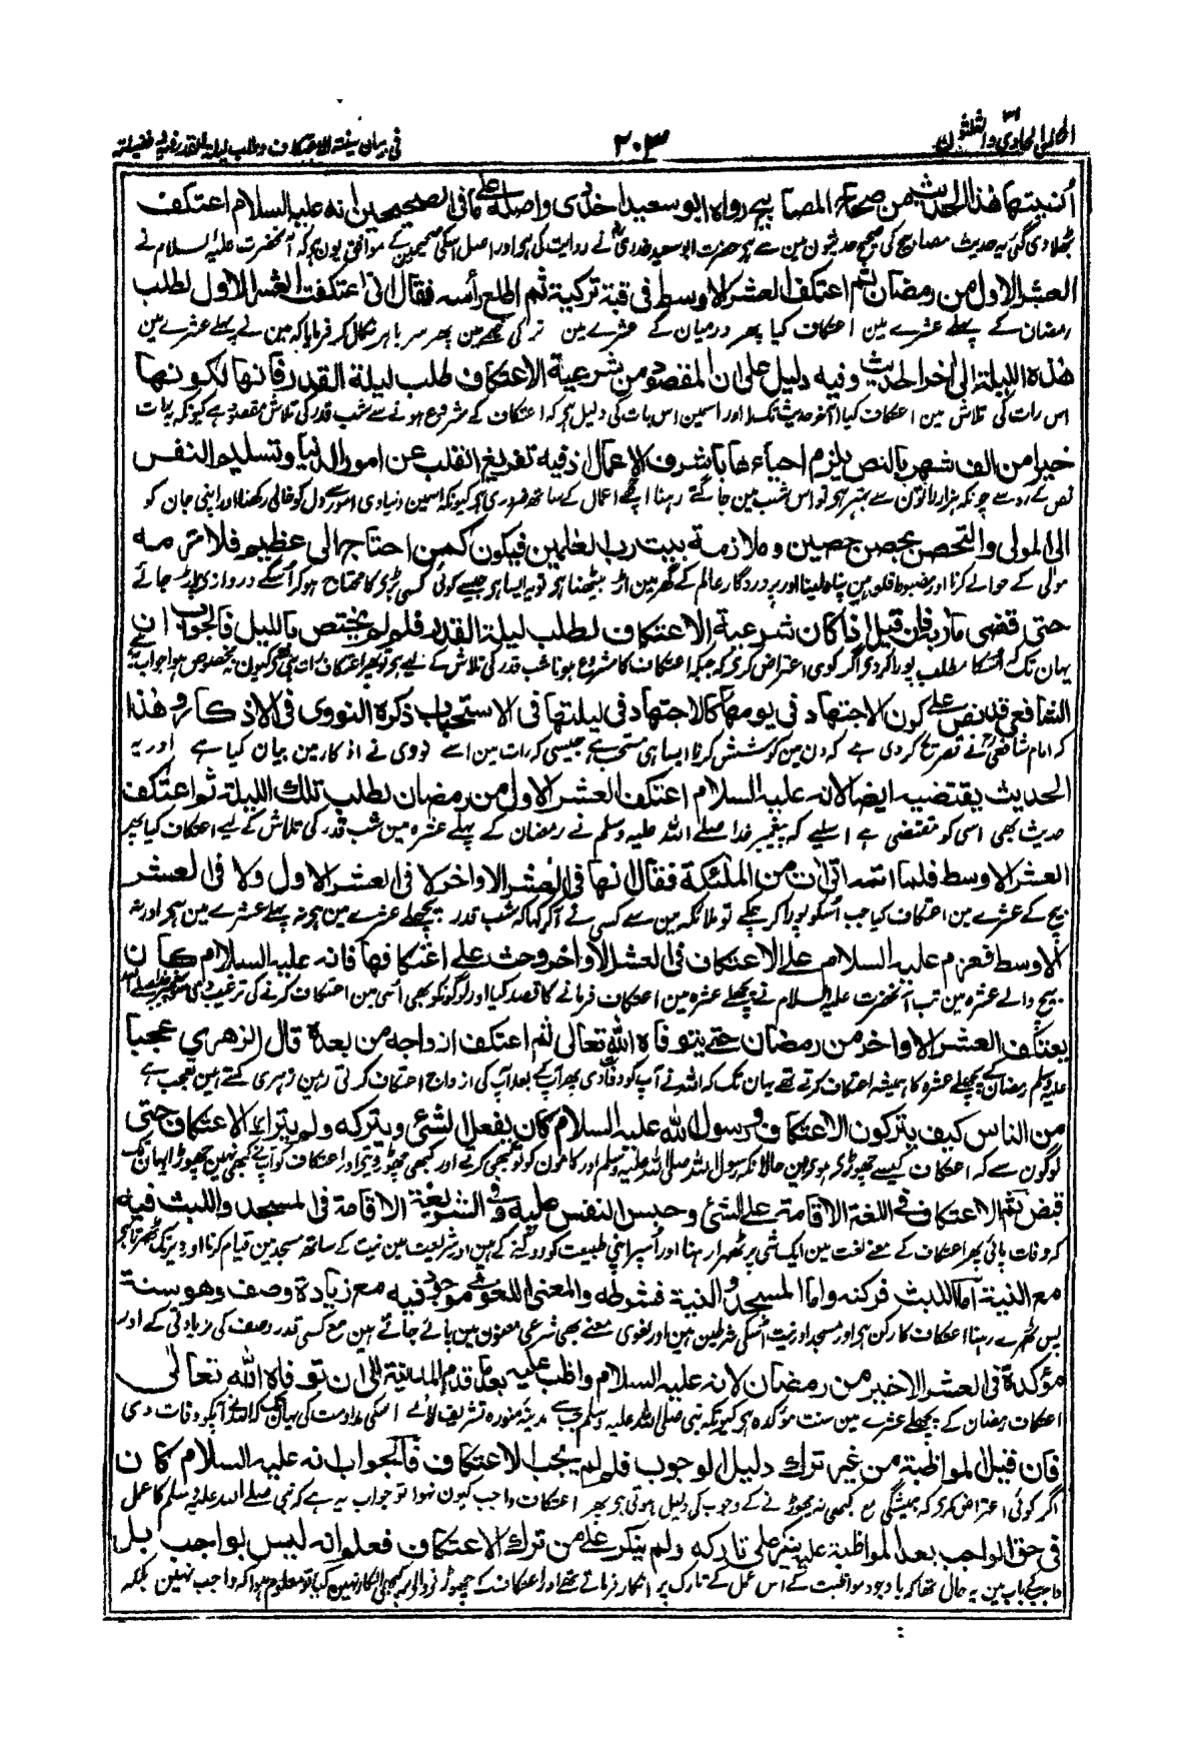 المجلس الحادي والثلثون ۲۰۳ فی بیان سنة الاعتکاف وطلب لیلة القدر فیه فضیلة
اُنسیتها هٰذا الحدیث من صحاح المصابیح رواه ابو سعید الخدری واصله علی ما فی الصحیحین انه علیه السلام اعتکف
بھلا دی گئی یہ حدیث مصابیح کی صحیح حدیثون مین سے ہی حضرت ابو سعید خدری نے روایت کی ہی اور اصل اسکی صحیحین کے موافق یون ہی کہ آنحضرت علیہ السلام نے
العشر الاول من رمضان ثم اعتکف العشر الاوسط فی قبة ترکیة ثم اطلع رأسه فقال انی اعتکفت العشر الاول لطلب
رمضان کے پہلے عشرے مین اعتکاف کیا پھر درمیان کے عشرے مین ترکی خیمے مین پھر سر باہر نکال کر فرمایا کہ مین نے پہلے عشرے مین
هٰذه اللیلة الی اٰخر الحدیث وفیه دلیل علی ان المقصود من شرعیة الاعتکاف طلب لیلة القدر فانها لکونها
اس رات کی تلاش مین اعتکاف کیا آخر حدیث تک اور اسمین اس بات کی دلیل ہی کہ اعتکاف کے مشروع ہونے سے شب قدر کی تلاش مقصود ہے کیونکہ یہ رات
خیرا من الف شهر بالنص یلزم احیاءها باشرف الاعمال اذ فیه تفریغ القلب عن امور الدنیا وتسلیم النفس
نص کے رو سے چونکہ ہزار راتون سے بہتر ہی تو اس شب مین جاگتے رہنا اچھے اعمال کے ساتھ ضروری ہی کیونکہ اسمین دنیاوی امور سے دل کو خالی رکھنا اور اپنی جان کو
الی المولی والتحصن بحصن حصین وملازمة بیت رب العلمین فیکون کمن احتاج الی عظیم فلازمه
مولی کے حوالے کرنا اور مضبوط قلعہ مین پناہ لینا اور پروردگار عالم کے گھر مین اڑ بیٹھنا ہی تو یہ ایسا ہی جیسے کوئی کسی بڑی کا محتاج ہو کر اُسکے دروازے پر اڑ جائے
حتی قضی مأربه فان قیل اذا کان شرعیة الاعتکاف لطلب لیلة القدر فلم لم یختص باللیل فالجواب ان
یہان تک کہ اُسکا مطلب پورا کر دی اگر کوئی اعتراض کری کہ جبکہ اعتکاف کا مشروع ہونا شب قدر کی تلاش کے لیے ہی تو پھر اعتکاف رات ہی کو کیون نہ مخصوص ہوا جواب یہ ہے
الشافعی قد نص علی کون الاجتهاد فی یومها کالاجتهاد فی لیلتها فی الاستحباب ذکره النووی فی الاذکار وهذا
کہ امام شافعی نے تصریح کر دی ہے کہ دن مین کوشش کرنا ایسا ہی مستحب ہے جیسی کہ رات مین اسے نووی نے اذکار مین بیان کیا ہے اور یہ
الحدیث یقتضیه ایضا لانه علیه السلام اعتکف العشر الاول من رمضان لطلب تلك اللیلة ثم اعتکف
حدیث بھی اسی کو مقتضی ہے اسلیے کہ پیغمبر خدا صلے اللہ علیہ وسلم نے رمضان کے پہلے عشرہ مین شب قدر کی تلاش کے لیے اعتکاف کیا پھر
العشر الاوسط فلما اتمه اتی اٰت من الملئکة فقال انها فی العشر الاواخر لا فی العشر الاول ولا فی العشر
بیچ کے عشرے مین اعتکاف کیا جب اُسکو پورا کر چکے تو ملائکہ مین سے کسی نے آکر کہا کہ شب قدر پچھلے عشرے مین ہی نہ پہلے عشرے مین ہی اور نہ
الاوسط فعزم علیه السلام علی الاعتکاف فی العشر الاواخر وحث علی اعتکافها فانه علیه السلام کان
بیچ والے عشرہ مین تب آنحضرت علیہ السلام نے پچھلے عشرہ مین اعتکاف فرمانے کا قصد کیا اور لوگونکو بھی اُسی مین اعتکاف کرنے کی ترغیب دی
یعتکف العشر الاواخر من رمضان حتی یتوفاه الله تعالی ثم اعتکف ازواجه من بعده قال الزهری عجبا
علیہ وسلم رمضان کے پچھلے عشرہ کا ہمیشہ اعتکاف کرتے تھے یہان تک کہ اللہ نے آپ کو وفات دی پھر آپکے بعد آپ کی ازواج اعتکاف کرتی رہین زہری کہتے ہین تعجب ہے
من الناس کیف یترکون الاعتکاف ورسول الله علیه السلام کان یفعل الشئ ویترکه ولم یترك الاعتکاف حتی
لوگون سے کہ اعتکاف کیسے چھوڑے ہوے ہین حالانکہ رسول اللہ صلی اللہ علیہ وسلم اور کامون کو تو کبھی کرتے اور کبھی چھوڑ دیتے اور اعتکاف کو آپ نے کبھی نہین چھوڑا یہان تک
قبض ثم الاعتکاف فی اللغة الاقامة علی الشئ وحبس النفس علیه وفی الشریعة الاقامة فی المسجد واللبث فیه
کہ وفات پائی پھر اعتکاف کے معنے لغت مین ایک شی پر ٹھہرا رہنا اور اُسپر اپنی طبیعت کو روکنے کے ہین اور شریعت مین نیت کے ساتھ مسجد مین قیام کرنا اور دیر تک ٹھہرنا ہی
مع النیة اما اللبث فرکنه واما المسجد والنیة فشرطه والمعنی اللغوی موجود فیه مع زیادة وصف وهو سنة
پس ٹھہرے رہنا اعتکاف کا رکن ہی اور مسجد اور نیت اُسکی شرطین ہین اور لغوی معنے بھی شرعی معنون مین پائے جاتے ہین مع کسی قدر وصف کی زیادتی کے اور
مؤکدة فی العشر الاخیر من رمضان لانه علیه السلام واظب علیه بعد ما قدم المدینة الی ان توفاه الله تعالی
اعتکاف رمضان کے پچھلے عشرے مین سنت مؤکدہ ہی کیونکہ نبی صلی اللہ علیہ وسلم جب سے مدینۂ منورہ تشریف لائے اسکی مداومت کی یہان تک کہ اللہ نے آپکو وفات دی
فان قیل المواظبة من غیر ترك دلیل الوجوب فلم لم یجب الاعتکاف فالجواب انه علیه السلام کان
اگر کوئی اعتراض کری کہ ہمیشگی مع کبھی نہ چھوڑنے کے وجوب کی دلیل ہوتی ہی پھر اعتکاف واجب کیون نہوا تو جواب یہ ہے کہ نبی صلے اللہ علیہ وسلم کا عمل
فی حق الواجب بعد المواظبة علیه ینکر علی تارکه ولم ینکر علی من ترك الاعتکاف فعلم انه لیس بواجب بل
واجب کے باب مین یہ حال تھا کہ باوجود مواظبت کے اس عمل کے تارک پر انکار فرماتے تھے اور اعتکاف کے چھوڑنے والے پر کبھی انکار نہین کیا تو معلوم ہوا کہ واجب نہین بلکہ